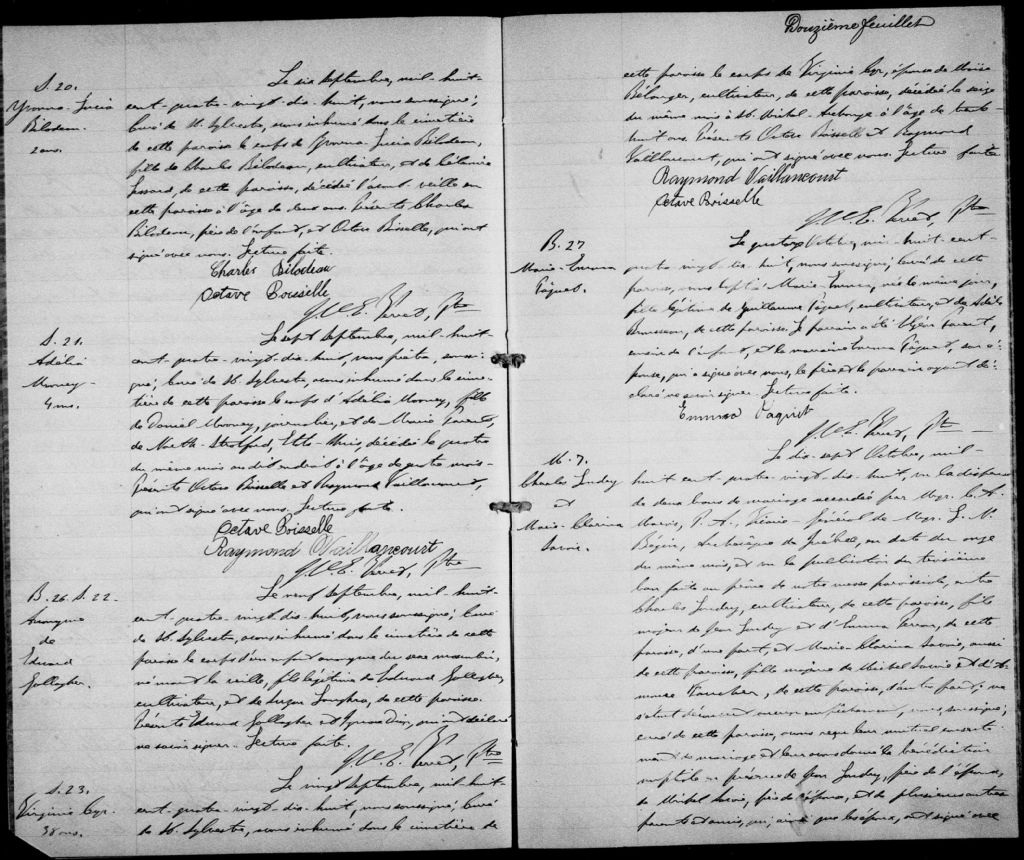 S. 20.
Yvonne Lucia
Bilodeau.
2 ans.
Le six septembre, mil-huit-
cent-quatre-vingt-dix-huit, nous soussigné,
Curé de St. Sylvestre, avons inhumé dans le cimetière
de cette paroisse le corps de Yvonne Lucia Bilodeau,
fille de Charles Bilodeau, cultivateur, et de
de cette paroisse, décédée l'avant-veille en
cette paroisse à l'âge de deux ans. Présents Charles
Bilodeau, père de l'enfant, et Octave Boisselle, qui ont
signé avec nous. Lecture faite.
Charles Bilodeau
Octave Boisselle
Ptre
S. 21.
Adélia
Mooney
4 ms.
Le sept septembre, mil-huit-
cent-quatre-vingt-dix-huit, nous prêtre, soussi-
gné, Curé de St. Sylvestre, avons inhumé dans le cime-
tière de cette paroisse le corps d'Adélia Mooney, fille
de Daniel Mooney, journalier, et de Marie
de North-Stratford, Etats-Unis, décédée le quatre
du même mois au dit endroit à l'âge de quatre mois.
Présents Octave Boisselle et Raymond Vaillancourt,
qui ont signé avec nous. Lecture faite.
Octave Boisselle
Raymond Vaillancourt
Ptre
B. 26. S. 22.
Anonyme
de
Edward
Gallagher.
Le neuf septembre, mil-huit-
cent-quatre-vingt-dix-huit, nous soussigné, Curé
de St. Sylvestre, avons inhumé dans le cimetière de cette
paroisse le corps d'un enfant anonyme du sexe masculin,
né mort la veille, fils légitime de Edward Gallagher,
cultivateur, et de de cette paroisse.
Présents Edward Gallagher et qui ont déclaré
ne savoir signer. Lecture faite.
Ptre
S. 23.
Virginie Cyr.
38 ans.
Le vingt septembre, mil-huit-
cent-quatre-vingt-dix-huit, nous soussigné, Curé
de St. Sylvestre, avons inhumé dans le cimetière de
Douzième feuillet
cette paroisse le corps de Virginie Cyr, épouse de Moïse
Bélanger, cultivateur, de cette paroisse, décédée le seize
du même mois à St. Michel-Archange à l'âge de trente-
huit ans. Présents Octave Boisselle et Raymond
Vaillancourt, qui ont signé avec nous. Lecture faite
Raymond Vaillancourt
Octave Boisselle
Ptre
B. 27
Marie-Emma
Pâquet.
Le quatre Octobre, mil-huit-cent-
quatre-vingt-dix-huit, nous soussigné, Curé de cette
paroisse, avons baptisé Marie-Emma, née le même jour,
fille légitime de Guillaume Pâquet, cultivateur, et de
de cette paroisse. Le parrain a été
de l'enfant, et la marraine Emma Pâquet, son é-
pouse, qui a signé avec nous, le père et le parrain ayant dé-
claré ne savoir signer. Lecture faite.
Emma Paquet
Ptre
M. 7.
Charles
et
Marie-Clarina
Savoie.
Le dix-sept Octobre, mil-
huit-cent-quatre-vingt-dix-huit, vu la dispense
de deux bans de mariage accordée par Mgr. C. A.
Marois, P. A. Vicaire-Général de Mgr. L. N.
Bégin, Archevêque de Québec, en date du onze
du même mois, et vu la publication du troisième
ban faite au prône de notre messe paroissiale, entre
Charles cultivateur, de cette paroisse, fils
majeur de Jean et d'Emma de cette
paroisse, d'une part, et Marie-Clarina Savoie, aussi
de cette paroisse, fille majeure de Michel Savoie et d'
de cette paroisse, d'autre part; ne
s'étant découvert aucun empêchement, nous, soussigné,
curé de cette paroisse, avons reçu leur mutuel consente-
ment de mariage et leur avons donné la bénédiction
nuptiale en présence de Jean père de l'époux,
de Michel Savoie, père de l'épouse, et de plusieurs autres
parents et amis, qui, ainsi que les époux, ont signé avec